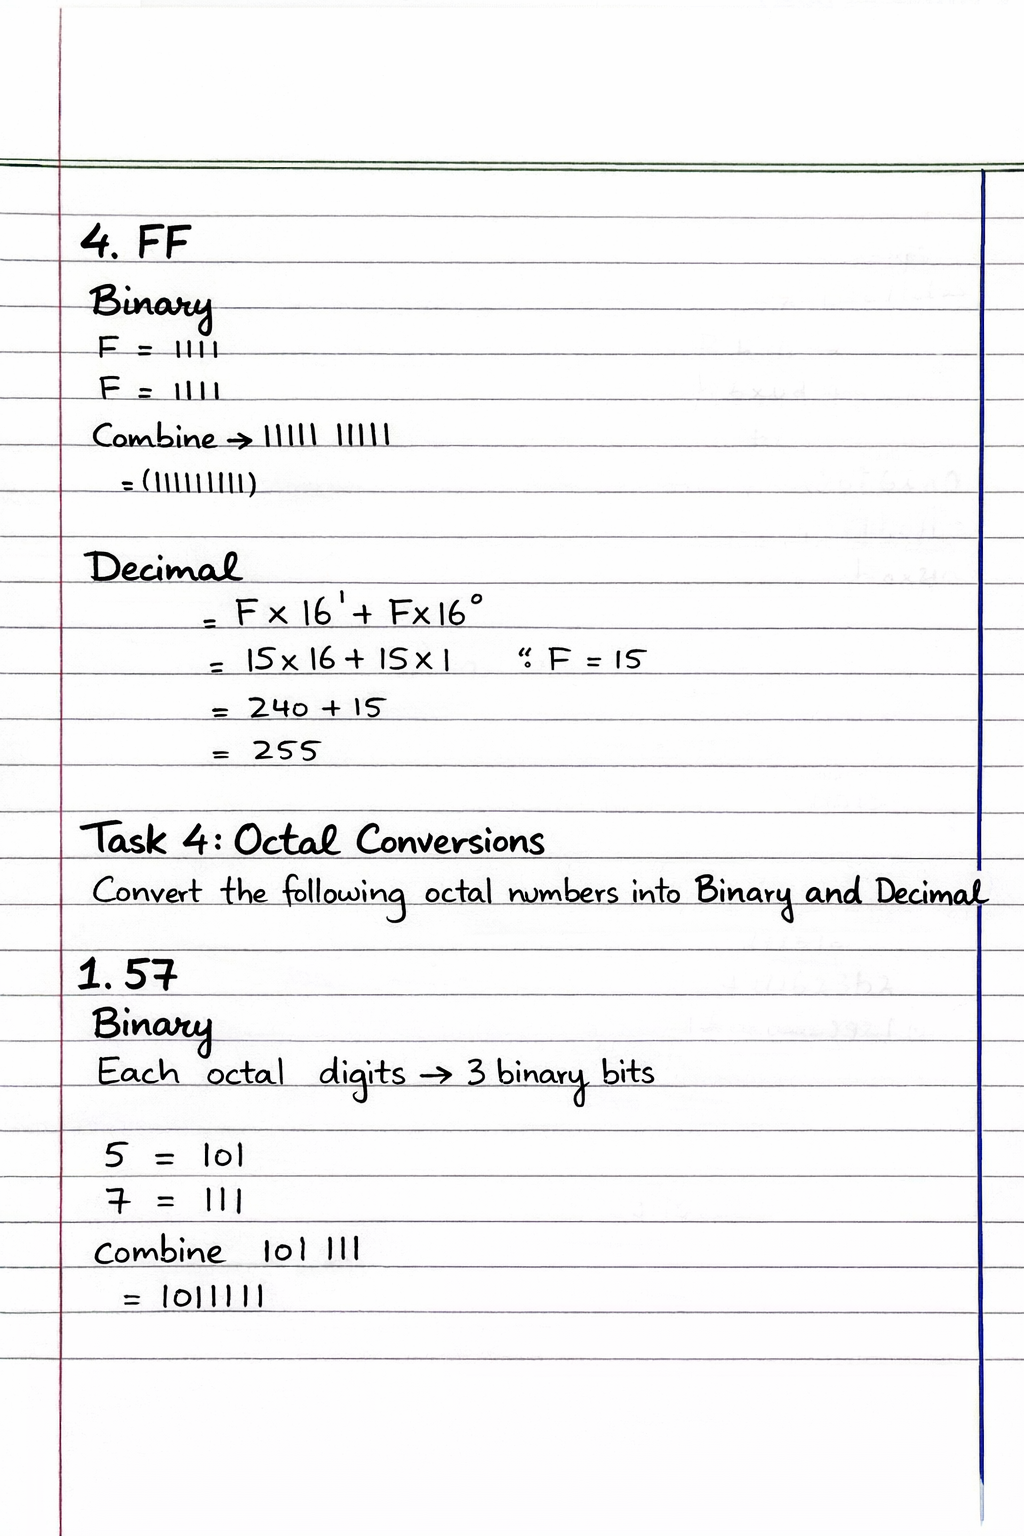 4. FF
Binary
F = 1111
F = 1111
Combine → 11111 11111
= (1111111111)
Decimal
= F x 16¹ + F x 16⁰
= 15 x 16 + 15 x 1 “: F = 15
= 240 + 15
= 255
Task 4: Octal Conversions
Convert the following octal numbers into Binary and Decimal
1. 57
Binary
Each octal digits → 3 binary bits
5 = 101
7 = 111
combine 101 111
= 1011111